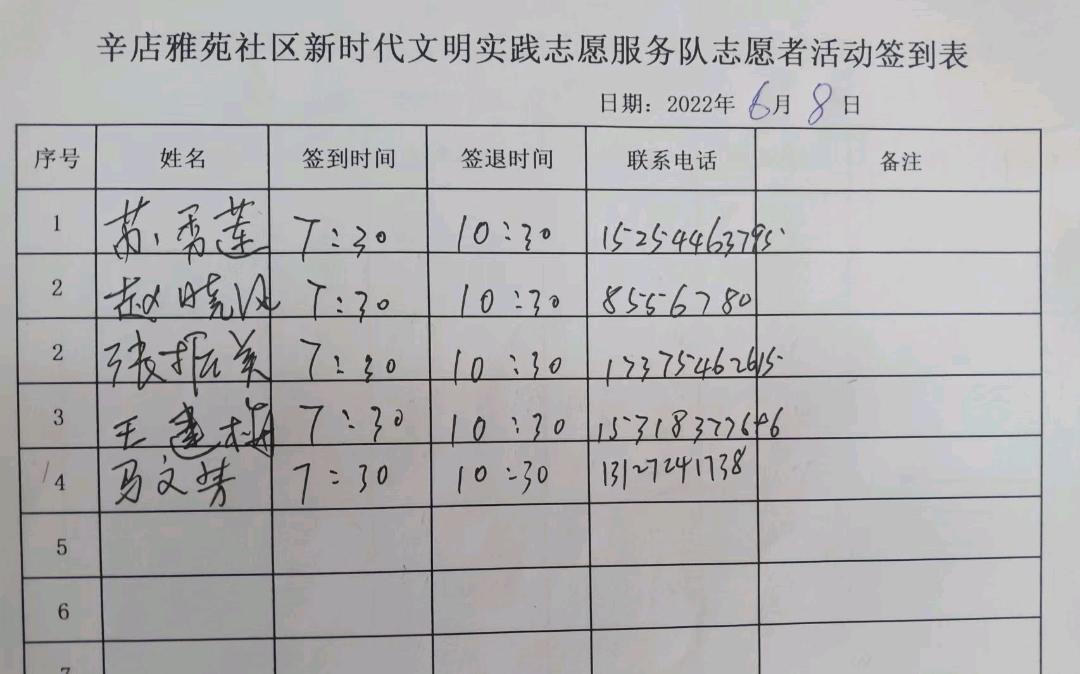 辛店雅苑社区新时代文明实践志愿服务队志愿者活动签到表
日期：2022年 6月 8日
序号 姓名 签到时间 签退时间 联系电话 备注
1 秀莲 7:30 10:30 15254463795
2 赵晓 7:30 10:30 8556780
2 张振美 7:30 10:30 17375462615
3 王建梅 7:30 10:30
4 马文芳 7:30 10:30 13127241738
5
6
7